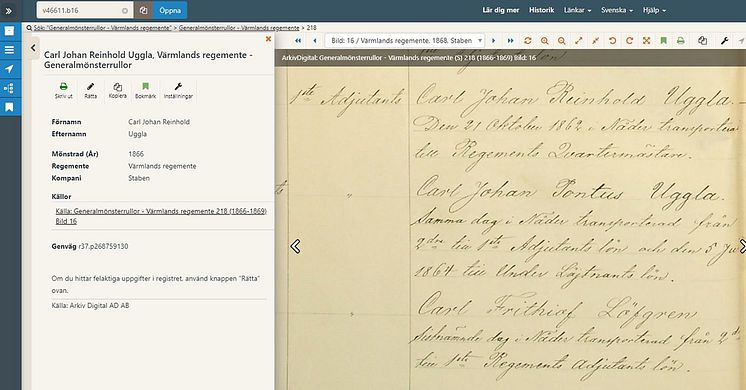 v46611.b16
Öppna
Lär dig mer Historik Länkar Svenska Hjälp
Sök: "Generalmönsterrullor - Värmlands regemente" > Generalmönsterrullor - Värmlands regemente > 218
Carl Johan Reinhold Uggla, Värmlands regemente - Generalmönsterrullor
Skriv ut Rätta Kopiera Bokmärk Inställningar
Förnamn Carl Johan Reinhold
Efternamn Uggla
Mönstrad (År) 1866
Regemente Värmlands regemente
Kompani Staben
Källor
Källa: Generalmönsterrullor - Värmlands regemente 218 (1866-1869)
Bild 16
Genväg r37.p268759130
Om du hittar felaktiga uppgifter i registret. använd knappen "Rätta"
ovan.
Källa: Arkiv Digital AD AB
Bild: 16 / Värmlands regemente. 1868, Staben
ArkivDigital: Generalmönsterrullor - Värmlands regemente (S) 218 (1866-1869) Bild: 16
1ste Adjutants Carl Johan Reinhold Uggla.
Den 21 Oktober 1862 i Nåder transportera
till Regements Qvartermästare.
" Carl Johan Pontus Uggla.
Samma dag i Nåder transporterad från
2dra till 1ste Adjutants lön och den 5 Ju
1864 till Under Löjtnants lön.
" Carl Frithiof Löfgren
Sistnämnde dag i Nåder transporterad från 2d
till 1ste Regements Adjutants lön.